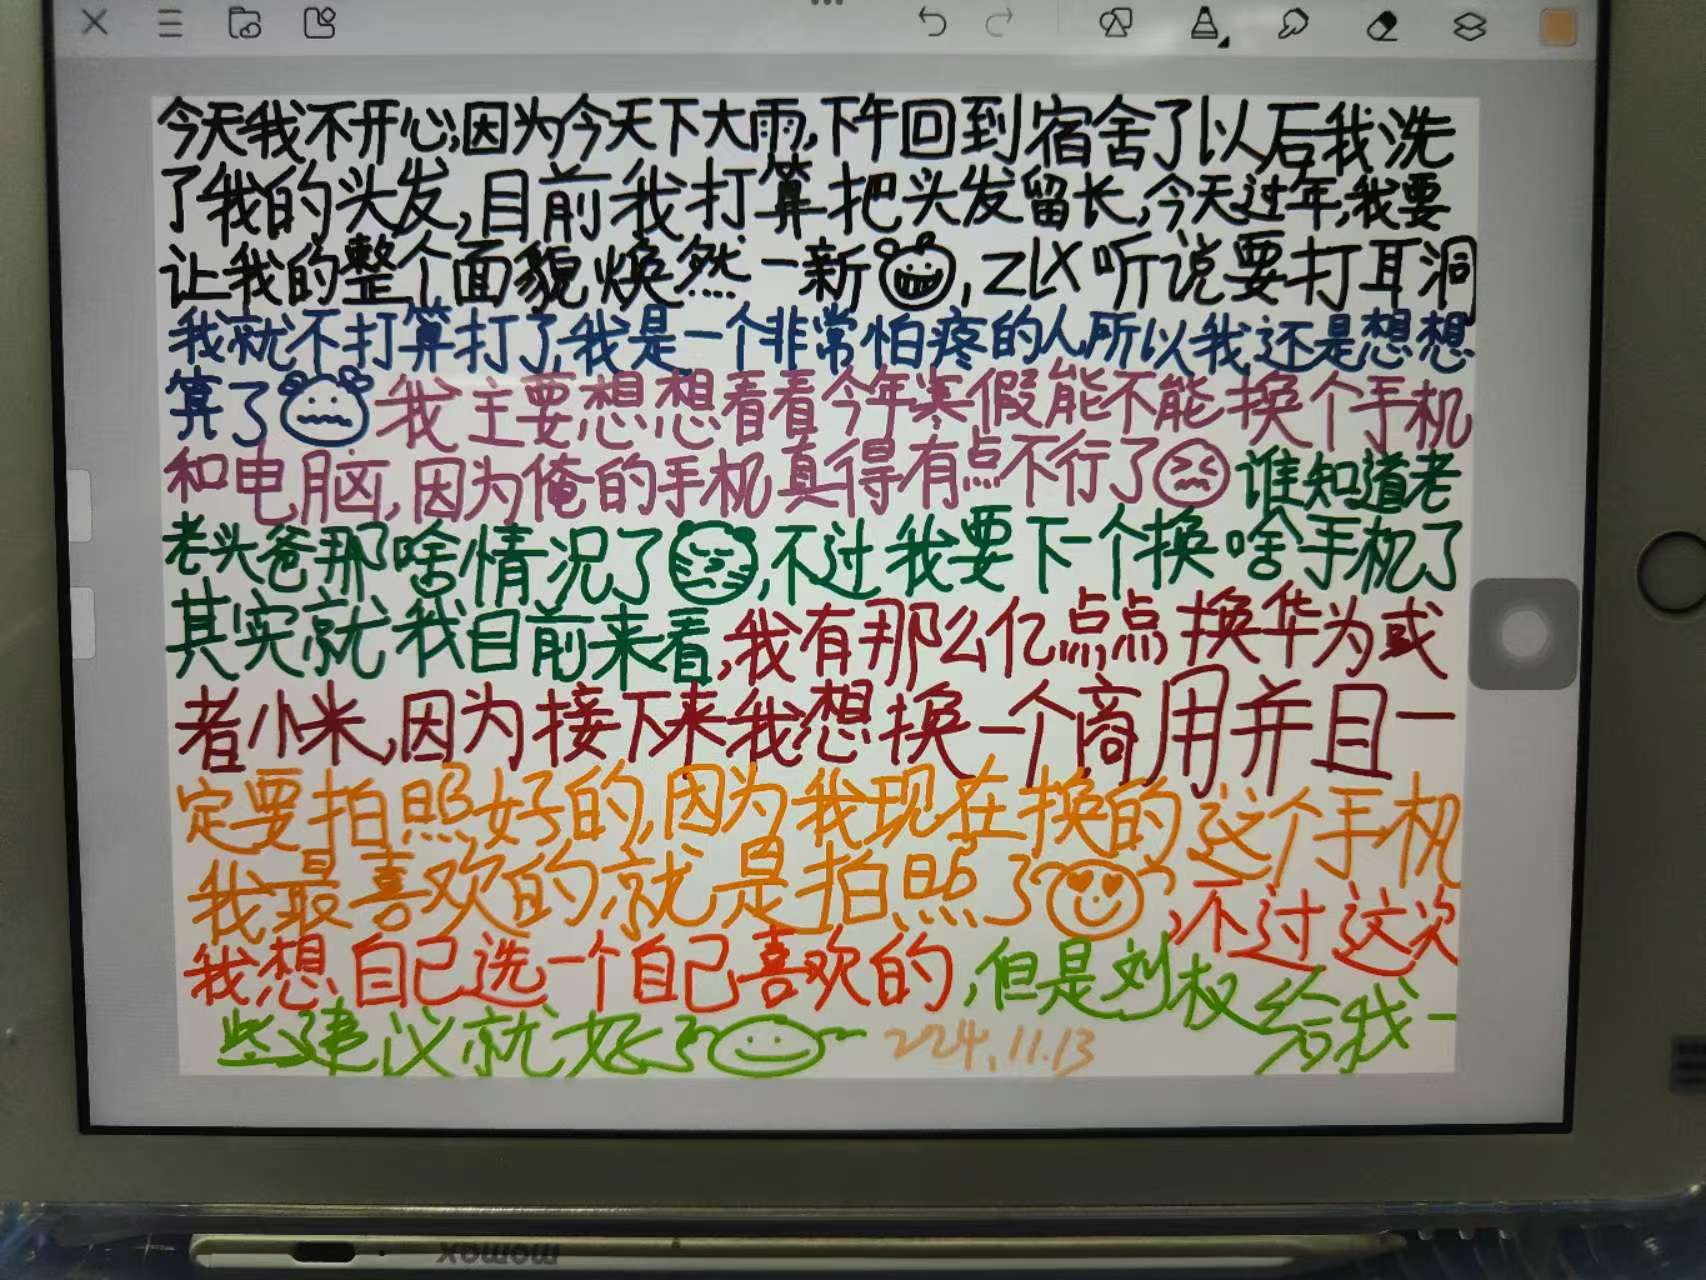 今天我不开心,因为今天下大雨,下午回到宿舍了以后我洗
了我的头发,目前我打算把头发留长,今天过年,我要
让我的整个面貌焕然一新,ZLX听说要打耳洞
我就不打算打了,我是一个非常怕疼的人,所以我还是想想
算了我主要想想看看今年寒假能不能换个手机
和电脑,因为俺的手机真得有点不行了谁知道老
老头爸那啥情况了,不过我要下一个换啥手机了
其实就我目前来看,我有那么亿点点换华为或
者小米,因为接下来我想换一个商用并且一
定要拍照好的,因为我现在换的这个手机
我最喜欢的就是拍照了,不过这次
我想自己选一个自己喜欢的,但是刘权给我一
些建议就好了 2024.11.13
momax